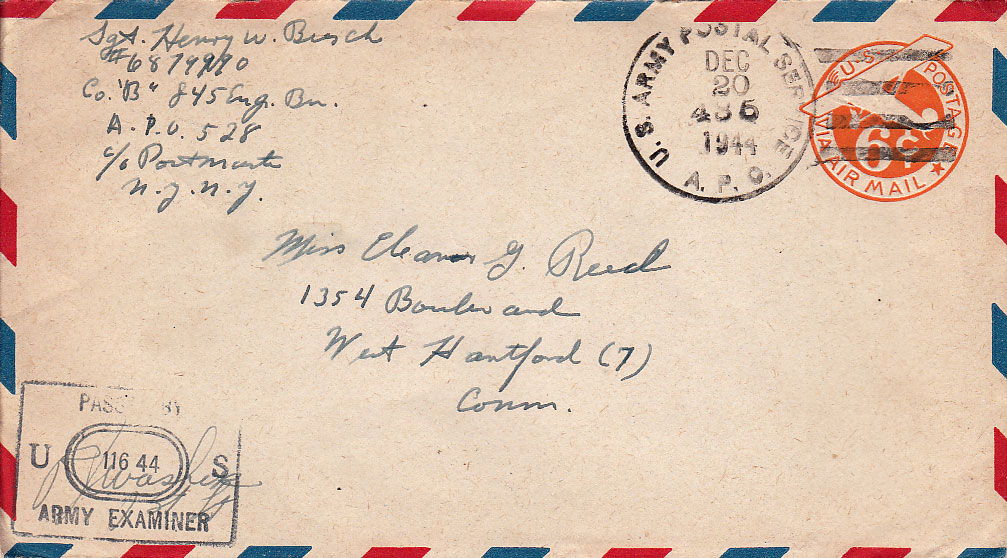 Sgt. Henry W. Busch
#6879990
Co. "B" 845 Eng. Bn.
A.P.O. 528
c/o Postmaster
N.Y. N.Y.
U.S. ARMY POSTAL SERVICE
DEC
20
1944
A.P.O.
U.S. POSTAGE
6¢
VIA AIR MAIL
Miss Eleanor G. Reed
1354 Boulevard
West Hartford (7)
Conn.
PASS BY
U 11644 S
ARMY EXAMINER